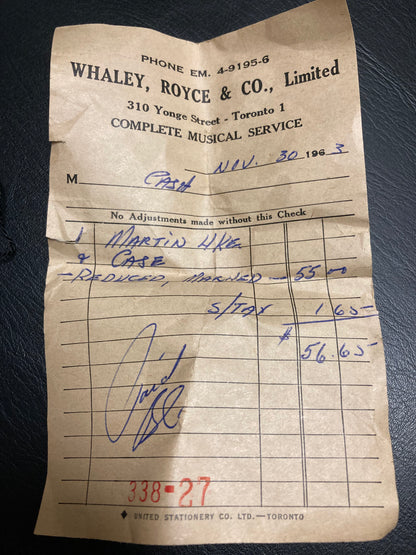 PHONE EM. 4-9195-6
WHALEY, ROYCE & CO., Limited
310 Yonge Street - Toronto 1
COMPLETE MUSICAL SERVICE
NOV. 30 1963
M CASH
No Adjustments made without this Check
1 MARTIN UKE
& CASE
- REDUCED, MARKED - 55 00
S/TAX 1 65
$ 56.65
Paid
338-27
UNITED STATIONERY CO. LTD.—TORONTO